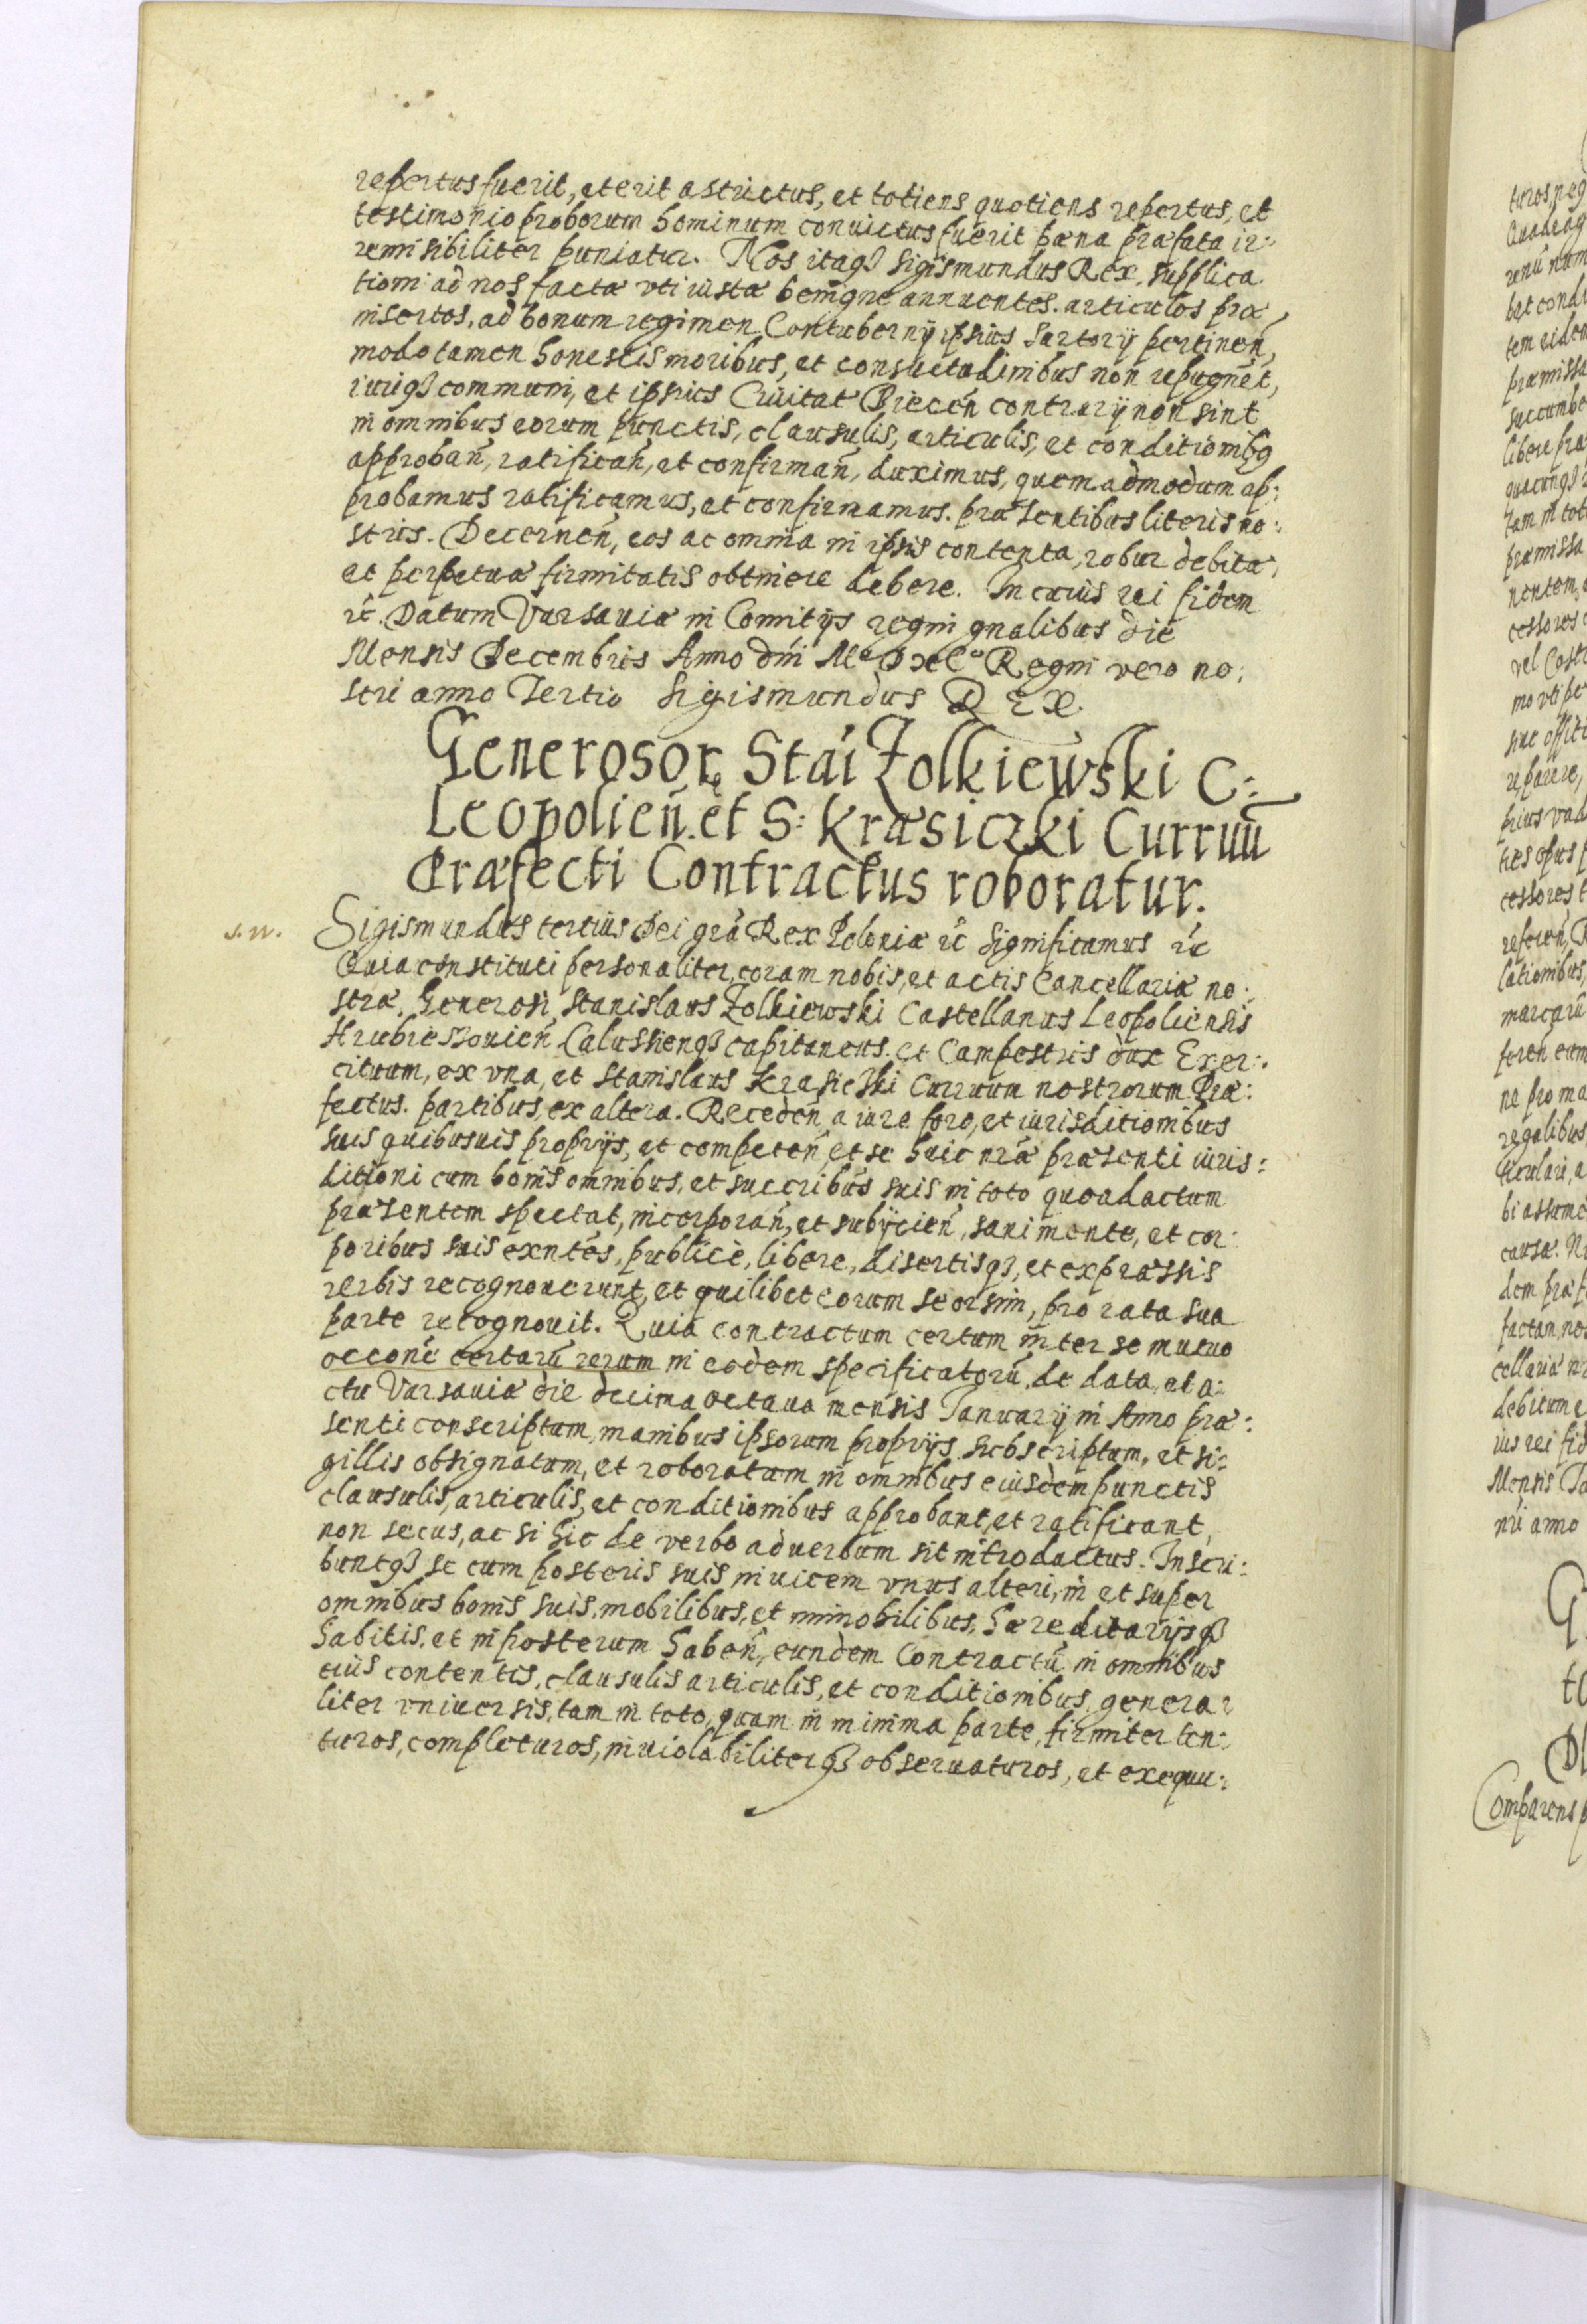 repertus fuerit, et erit astrictus, et totiens quotiens repertus, et
testimonio proborum hominum conuictus fuerit pæna præfata ir:
remisibiliter puniatur. Nos itaqꝫ Sigismundus Rex, supplica
tioni ad nos factæ vti iustæ benigne annuentes. articulos præ
insertos, ad bonum regimen Contubernÿ ipsius Sartorÿ pertineñ,
modo tamen honestis moribus, et consuetudinibus non repugnēt,
iuriqꝫ communi, et ipsius Ciuitat Biecēn contrarÿ non sint
in omnibus eorum punctis, clausulis, articulis, et conditionibꝫ
approbañ, ratificañ, et confirmañ, duximus, quemadmodum ap:
probamus ratificamus, et confirmamus. præsentibus literis no:
stris. Decerneñ, eos ac omnia in ipsis contenta, robur debitæ,
et perpetuæ firmitatis obtinere debere. In cuius rei fidem
rc̄. Datum Varsauiæ in Comitÿs regni gnalibus die
Mensis Decembris Anno dni Mº D xCº Regni vero no:
stri anno Tertio Sigismundus REX
Generosoꝝ Stai Zolkiewski C:
Leopolieñ. et S: Krasiczki Curruū
Præfecti Contractus roboratur.
S. W. Sigismundus tertius Dei grā Rex Poloniæ rc̄ Significamus rc̄
Quia constituti personaliter, coram nobis, et actis Cancellariæ no:
stræ. Generosi, Stanislaus Zolkiewski Castellanus Leopoliensis
Hrubiesxouieñ Calussienqꝫ capitaneus. et Campestris dux Exer:
cituum, ex vna, et Stanislaus Krasicski Curruum nostrorum Præ:
fectus. partibus, ex altera. Recedeñ a iure foro, et iurisditionibus
suis quibusuis proprÿs, et competeñ et se huic nræ præsenti iuris:
ditioni cum bonis omnibus, et succribus suis in toto quoad actum
præsentem spectat, incorporañ, et subÿcieñ, sani mente, et cor:
poribus suis exntes, publicè, libere, disertisqꝫ, et expræssis
verbis recognouerunt, et quilibet eorum seorsim, pro rata sua
parte recognouit. Quia contractum certum inter se mutuo
occone certarū rerum in eodem specificatorū, de data, et a:
ctu Varsauiæ die decima octaua mensis Januarÿ in Anno præ:
senti conscriptum, manibus ipsorum proprÿs subscriptum, et si:
gillis obsignatum, et roboratum in omnibus eiusdem punctis
clausulis, articulis, et conditionibus approbant, et ratificant,
non secus, ac si hic de verbo ad verbum sit introductus. Inscri:
buntqꝫ se cum posteris suis inuicem vnus alteri, in et super
omnibus bonis suis, mobilibus, et immobilibus, hæreditarÿsqꝫ
habitis, et in posterum habeñ, eundem Contractū in omnibus
eius contentis, clausulis articulis, et conditionibus, genera:
liter vniuersis, tam in toto, quam in minima parte, firmiter ten:
turos, completuros, inuiolabiliterqꝫ obseruaturos, et exequu: